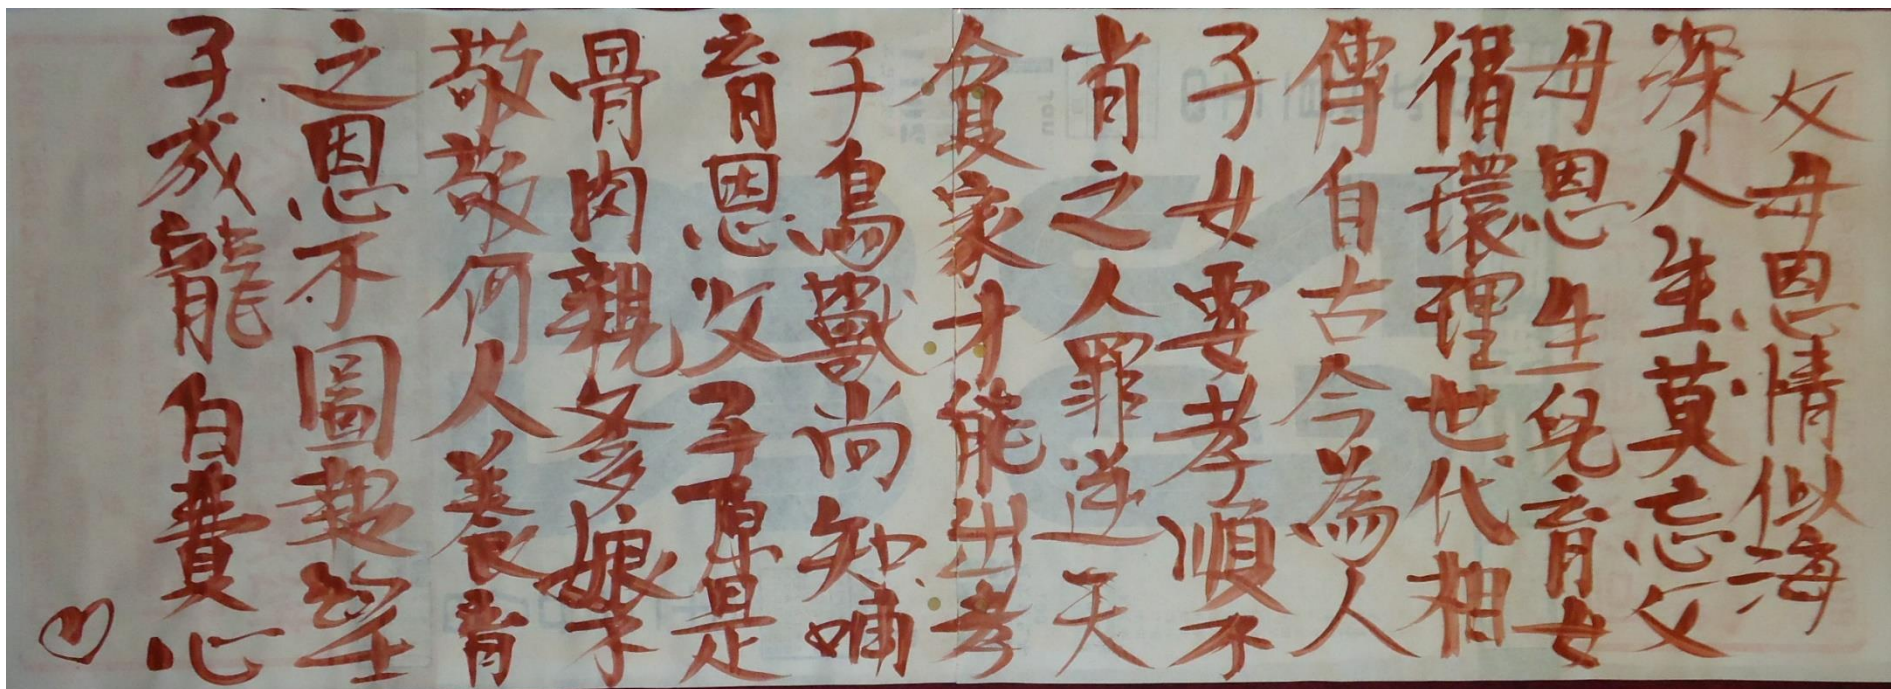 父母恩情似海
深人生莫忘父
母恩生兒育女
循環理世代相
傳自古今為人
子女要孝順不
肖之人罪逆天
貧家才能出孝
子鳥獸尚知哺
育恩父子原是
骨肉親爹娘不
敬敬何人養育
之恩不圖報望
子成龍白費心